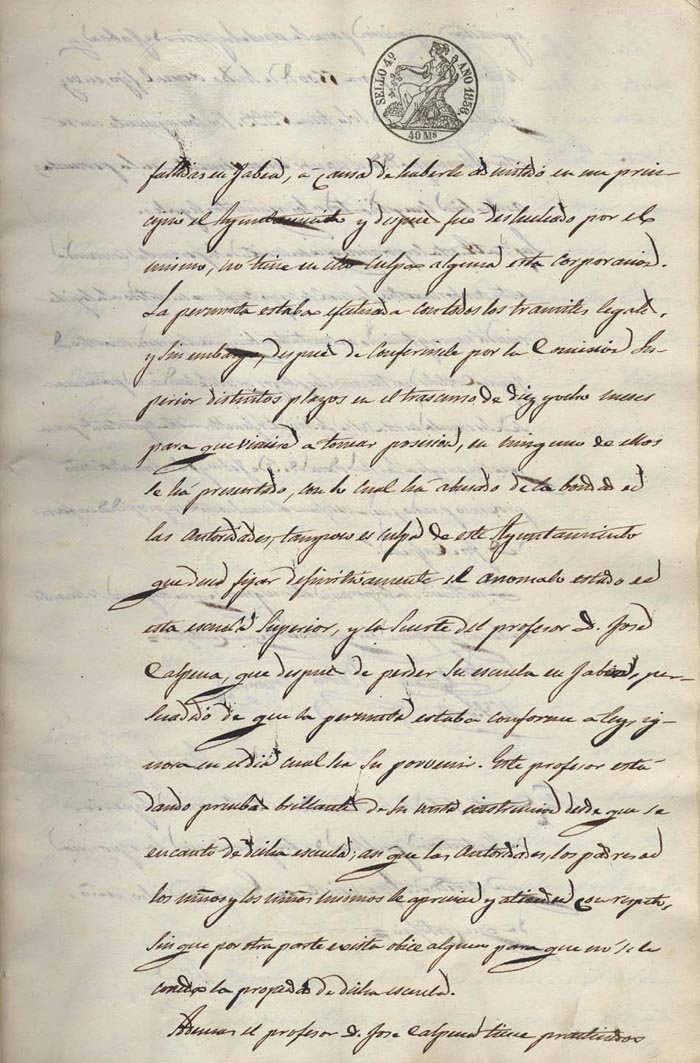 SELLO 4º AÑO 1858.
40 Ms
falladas en Jabea, a causa de haberle admitido en un prin-
cipio el Ayuntamiento y despues fue deshechado por el
mismo, no tiene en ello culpa alguna esta corporacion.
La permuta estaba efectuada con todos los tramites legales,
y sin embargo, despues de conferirsele por la Comision Su-
perior distintos plazos en el trascurso de diez y ocho meses
para que viniera a tomar posesion, en ninguno de ellos
se há presentado, con lo cual há abusado de la bondad de
las Autoridades; tampoco es culpa de este Ayuntamiento
que deba fijar definitivamente el anomalo estado de
esta escuela Superior, y la suerte del profesor D. José
Calpena, que despues de perder su escuela en Jabea, per-
suadido de que la permuta estaba conforme a ley, ig-
nora en el dia cual sea su porvenir. Este profesor está
dando pruebas brillantes de su vasta instruccion desde que se
encargó de dicha escuela; asi que las Autoridades, los padres de
los niños y los niños mismos le aprecian y atienden con respeto,
sin que por otra parte exista obice alguno para que no se le
conceda la propiedad de dicha escuela.
Ademas el profesor D. Jose Calpena tiene practicados